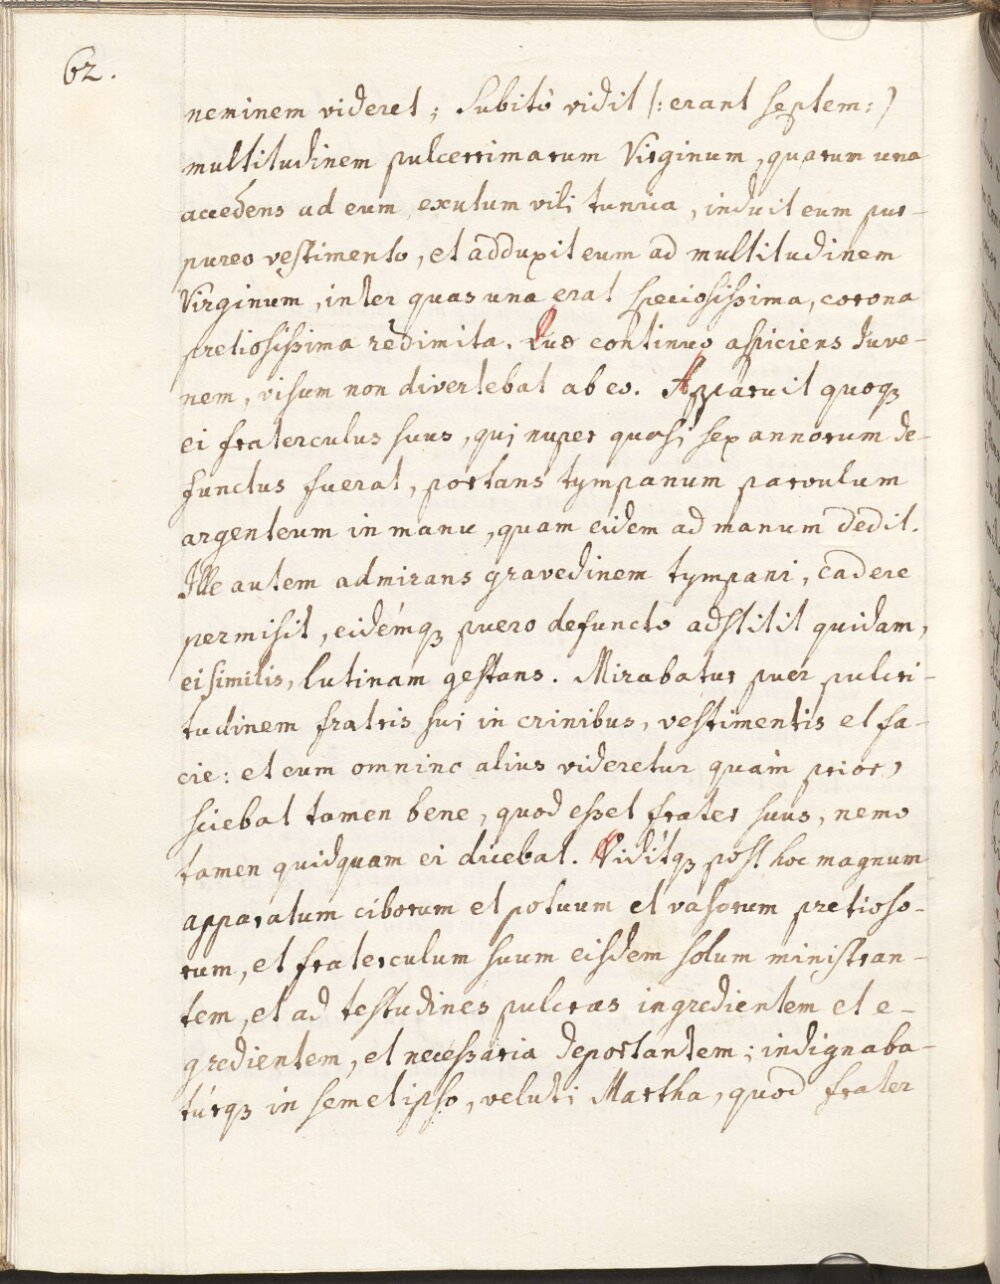 62.
neminem videret; Subitò vidit /: erant septem: )
multitudinem pulcerrimarum Virginum, quarum una
accedens ad eum, exutum vili tunica, induit eum pur-
pureo vestimento, et adduxit eum ad multitudinem
Virginum, inter quas una erat speciosissima, corona
pretiosissima redimita. Quae continuo aspiciens Juve-
nem, visum non divertebat ab eo. Apparuit quoqȝ
ei fraterculus suus, qui nuper quasi sex annorum de-
functus fuerat, portans tympanum parvulum
argenteum in manu, quam eidem ad manum dedit.
Ille autem admirans gravedinem tympani, cadere
permisit, eidémqȝ puero defuncto adstitit quidam,
ei similis, lutinam gestans. Mirabatur puer pulcri-
tudinem fratris sui in crinibus, vestimentis et fa-
cie: et cum omninò alius videretur quàm prior,
sciebat tamen bene, quod esset frater suus, nemo
tamen quidquam ei dicebat. Vidítqȝ post hoc magnum
apparatum ciborum et potuum et vasorum pretioso-
rum, et fraterculum suum eisdem solum ministran-
tem, et ad testudines pulcras ingredientem et e-
gredientem, et necessaria deportantem; indignaba-
túrqȝ in semetipso, veluti Martha, quod frater